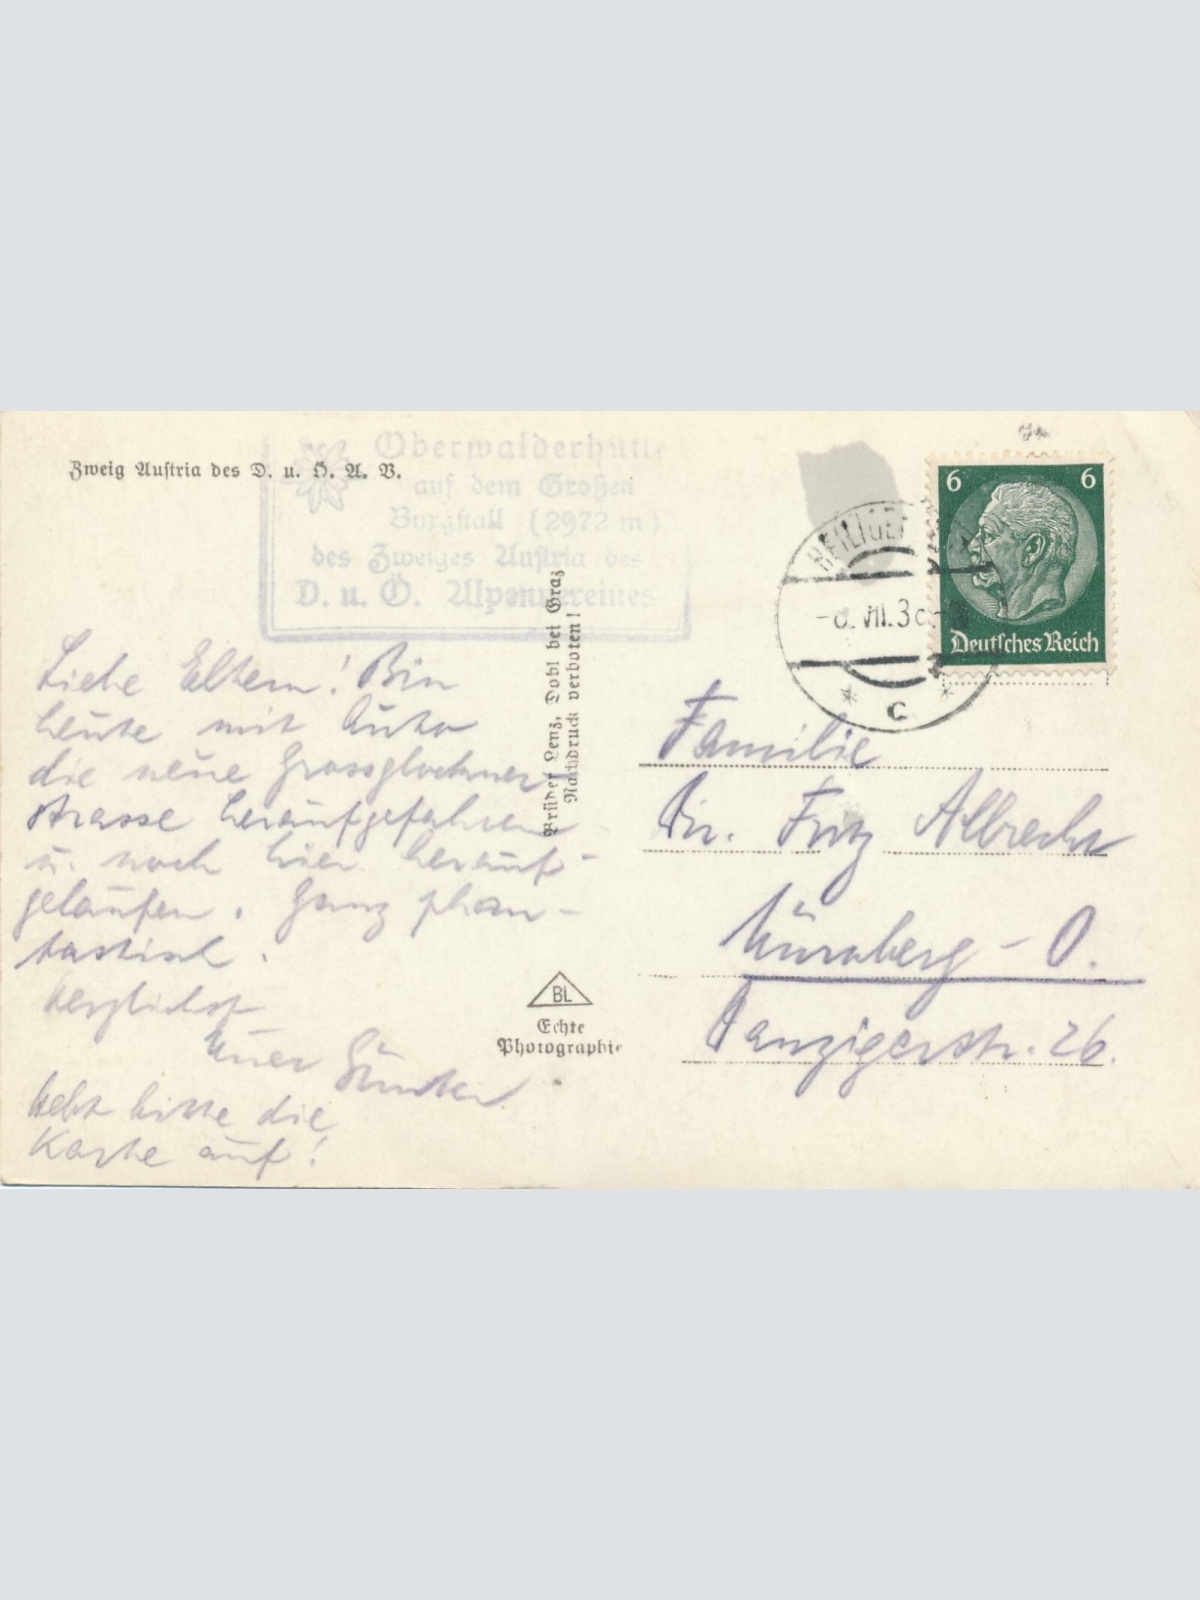 Zweig Austria des D. u. Ö. A. V.
Oberwalderhütte
auf dem Großen
Burgstall (2972 m)
des Zweiges Austria des
D. u. Ö. Alpenvereines
Liebe Eltern! Bin
heute mit Auto
die neue Grossglockner-
strasse heraufgefahren
u. noch hier herauf-
gelaufen. Ganz phan-
tastisch.
Herzlichst
Euer Günter
Hebt bitte die
Karte auf!
Brüder Lenz, Dobl bei Graz
Nachdruck verboten!
BL
Echte
Photographie
HEILIGEN
VII.3
C
6 6
Deutsches Reich
Familie
Dir. Fritz Albrecht
Nürnberg-O.
Danzigerstr. 26.